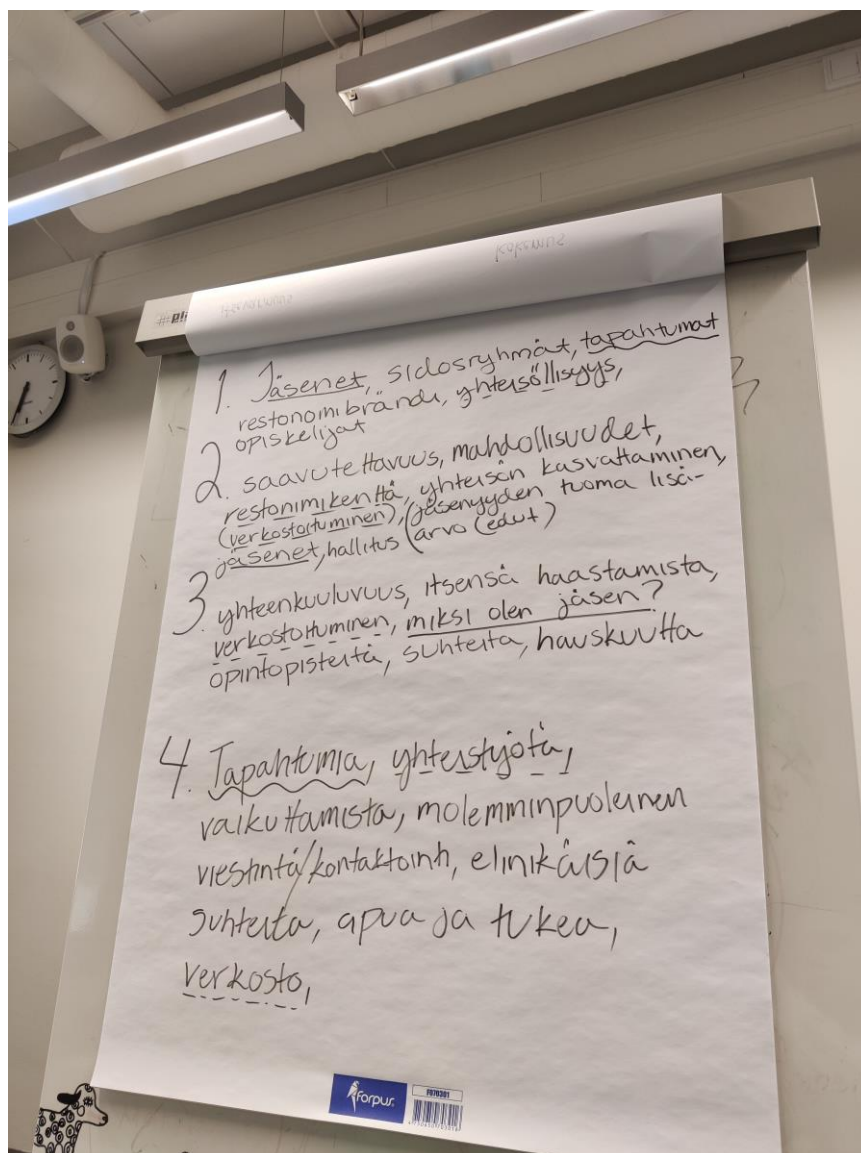 1. Jäsenet, sidosryhmät, tapahtumat
restonomibrändi, yhteisöllisyys,
opiskelijat
2. saavutettavuus, mahdollisuudet,
restonimikenttä, yhteisön kasvattaminen,
(verkostoituminen), (jäsenyyden tuoma lisä-
jäsenet, hallitus (arvo (edut)
3. yhteenkuuluvuus, itsensä haastamista,
verkostoituminen, miksi olen jäsen?
opintopisteitä, suhteita, hauskuutta
4. Tapahtumia, yhteistyötä,
vaikuttamista, molemminpuoleinen
viestintä/kontaktointi, elinikäisiä
suhteita, apua ja tukea,
verkosto,
Forpus
FO70301